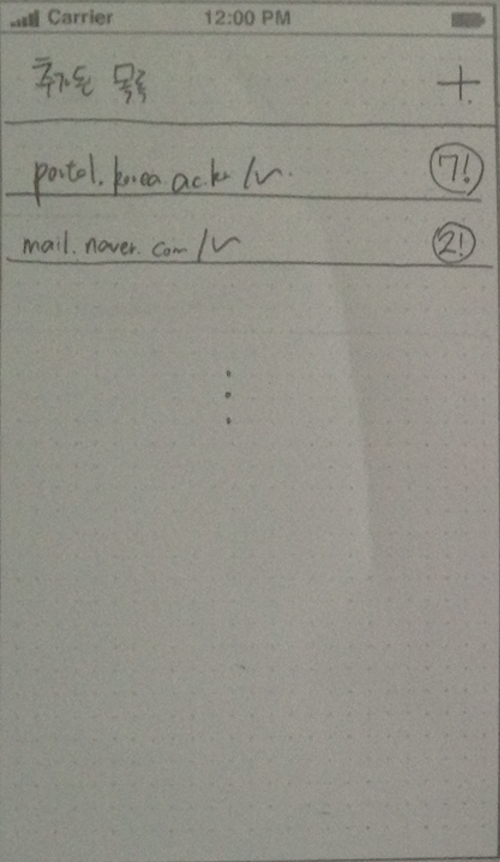 Carrier 12:00 PM
추가된 목록 +
portal.korea.ac.kr/ 7!
mail.naver.com/ 2!